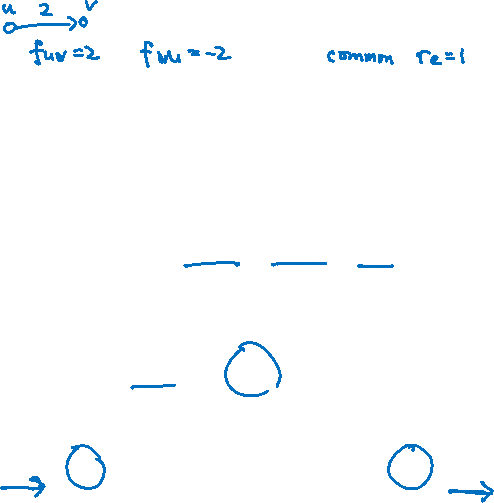 u 2 v
fuv=2 fvu=-2 common re=1